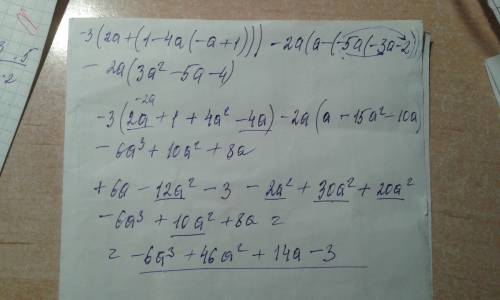 -3(2a+(1-4a(-a+1)))-2a(a-(-5a(-3a-2)))
-2a(3a²-5a-4)
-2a
-3(2a+1+4a²-4a)-2a(a-15a²-10a)
-6a³+10a²+8a
+6a-12a²-3-2a²+30a²+20a²
-6a³+10a²+8a=
=-6a³+46a²+14a-3